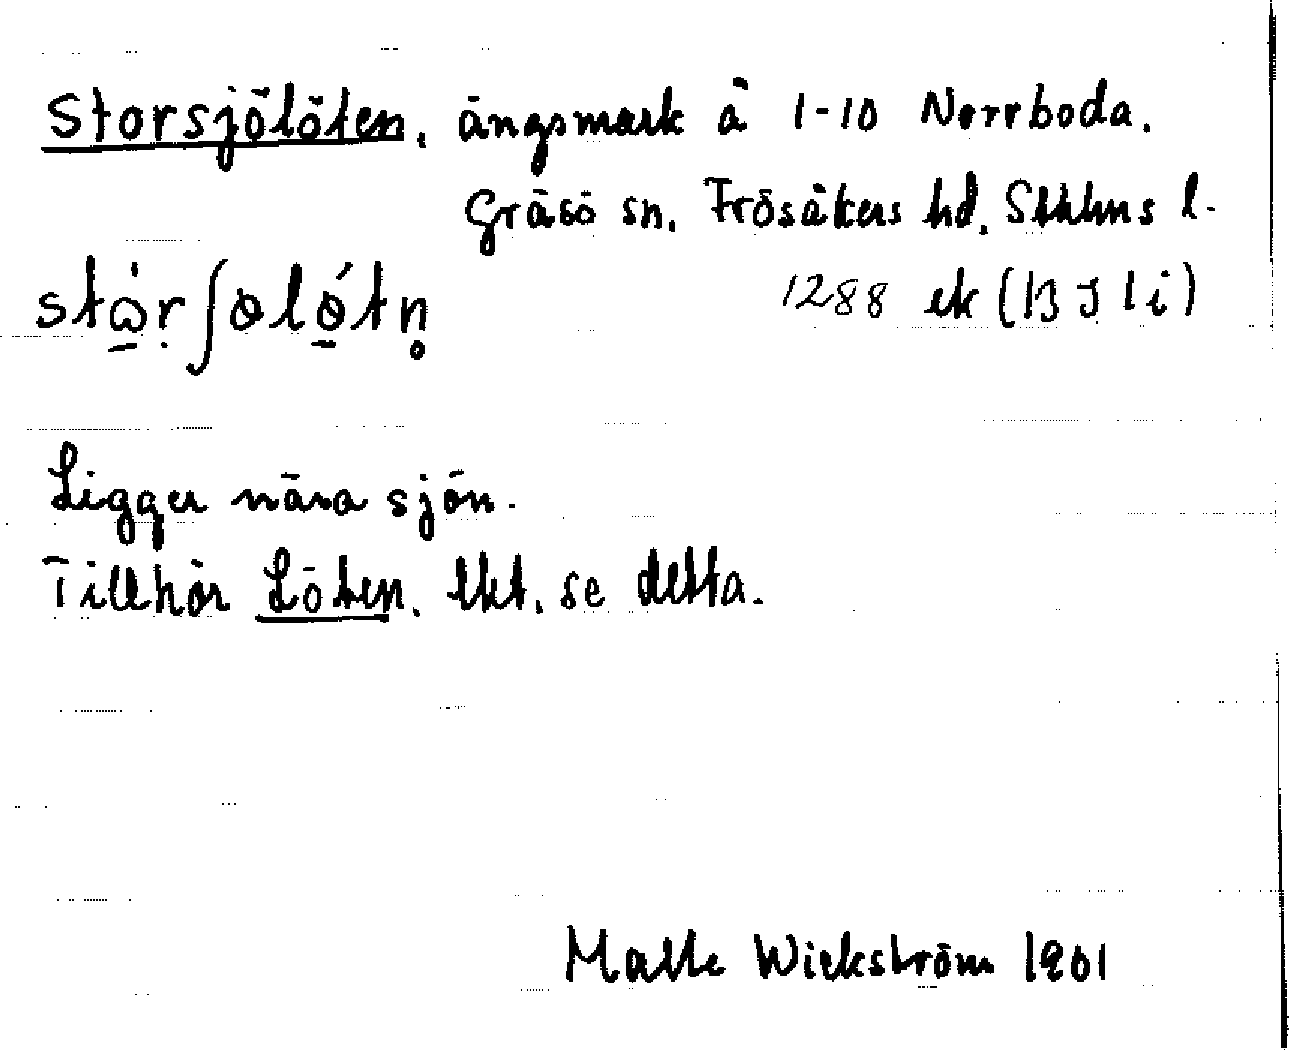 Storsjölöten, ängsmark å 1-10 Norrboda.
Gräsö sn. Frösåkers hd. Sthlms l.
stὼ̱rʃøló̱tn̥ 1288 ek (B J 1 i)
Ligger nära sjön.
Tillhör Löten. tkt. se detta.
Malte Wickström 1901